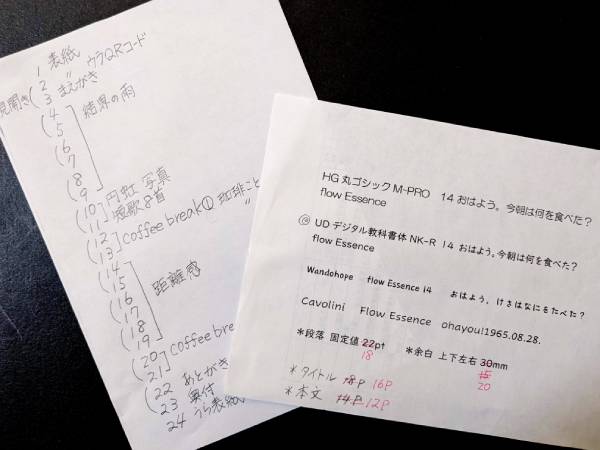 1 表紙
2 〃 ウラQRコード
見開き 3 まえがき
4 結界の雨
5
6
7
8
9
10 円虹 写真
11 短歌8首
12 coffee break① 珈琲こと
13 〃
14
15 距離感
16
17
18
19
20 coffee brea
21
22 あとがき
23 奥付
24 うら表紙
HG丸ゴシックM-PRO 14 おはよう。今朝は何を食べた?
flow Essence
UDデジタル教科書体 NK-R 14 おはよう。今朝は何を食べた?
flow Essence
Wandohope flow Essence 14 おはよう、けさはなにをたべた?
Cavolini Flow Essence ohayou!1965.08.28.
*段落 固定値 22pt *余白 上下左右 30mm
18 15
20
*タイトル 18P 16P
*本文 14P 12P